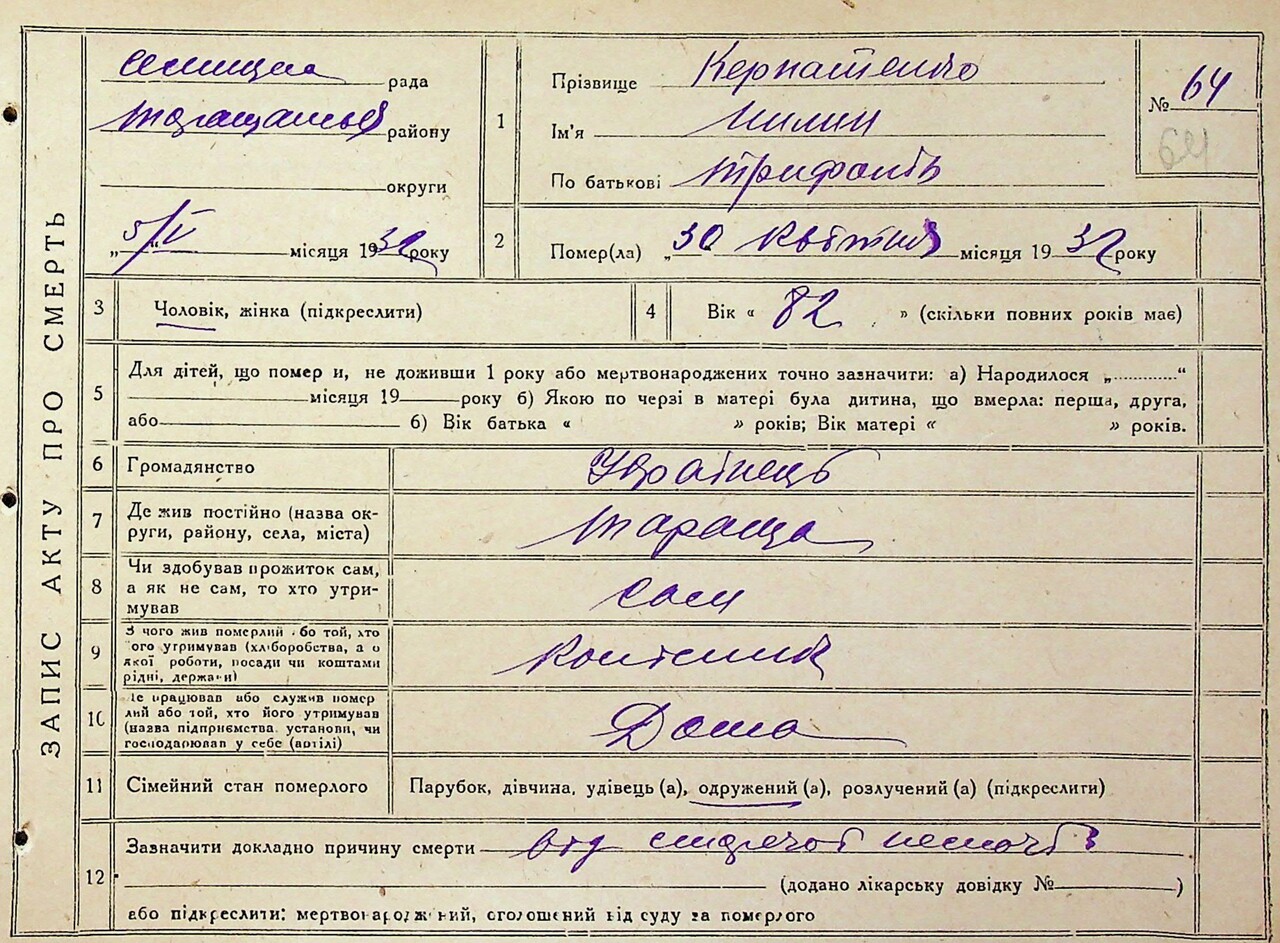 ЗАПИС АКТУ ПРО СМЕРТЬ
рада
району
округи
„5/V“ місяця 1932 року
1
Прізвище
Ім'я
По батькові
№ 64
64
2
Помер(ла) „30 квітня місяця 1932 року
3 Чоловік, жінка (підкреслити)
4 Вік « 82 » (скільки повних років має)
5
Для дітей, що помер и, не доживши 1 року або мертвонароджених точно зазначити: а) Народилося „............“
місяця 19 року б) Якою по черзі в матері була дитина, що вмерла: перша, друга,
або 6) Вік батька « » років; Вік матері « » років.
6 Громадянство Українець
7
Де жив постійно (назва ок-
руги, району, села, міста)
Тараща
8
Чи здобував прожиток сам,
а як не сам, то хто утри-
мував
сам
9
З чого жив померлий бо той, хто
ого утримував (хліборобства, а о
якої роботи, посади чи коштами
рідні, держави)
10
Де працював або служив помер
лий або той, хто його утримував
(назва підприємства установи, чи
господарював у себе (артілі)
Дома
11 Сімейний стан померлого
Парубок, дівчина, удівець (а), одружений (а), розлучений (а) (підкреслити)
12
Зазначити докладно причину смерти від старечої немочі
(додано лікарську довідку № )
або підкреслити: мертвонароджений, оголошений від суду за померлого